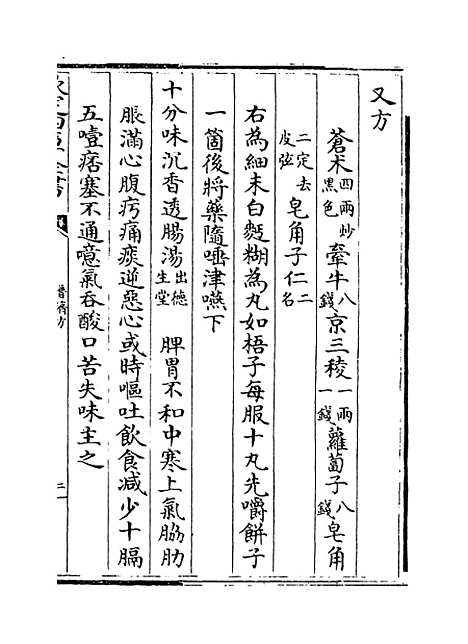 又方
蒼朮四兩炒黑色牽牛八錢京三稜一兩一錢蘿蔔子八錢皂角
二定去皮弦皂角子仁二名
右為細末白麪糊為丸如梧子每服十丸先嚼餅子
一箇後將藥隨唾津嚥下
十分味沉香透腸湯出德生堂 脾胃不和中寒上氣脇肋
脹滿心腹疞痛痰逆惡心或時嘔吐飲食減少十膈
五噎痞塞不通噫氣吞酸口苦失味主之
普濟方